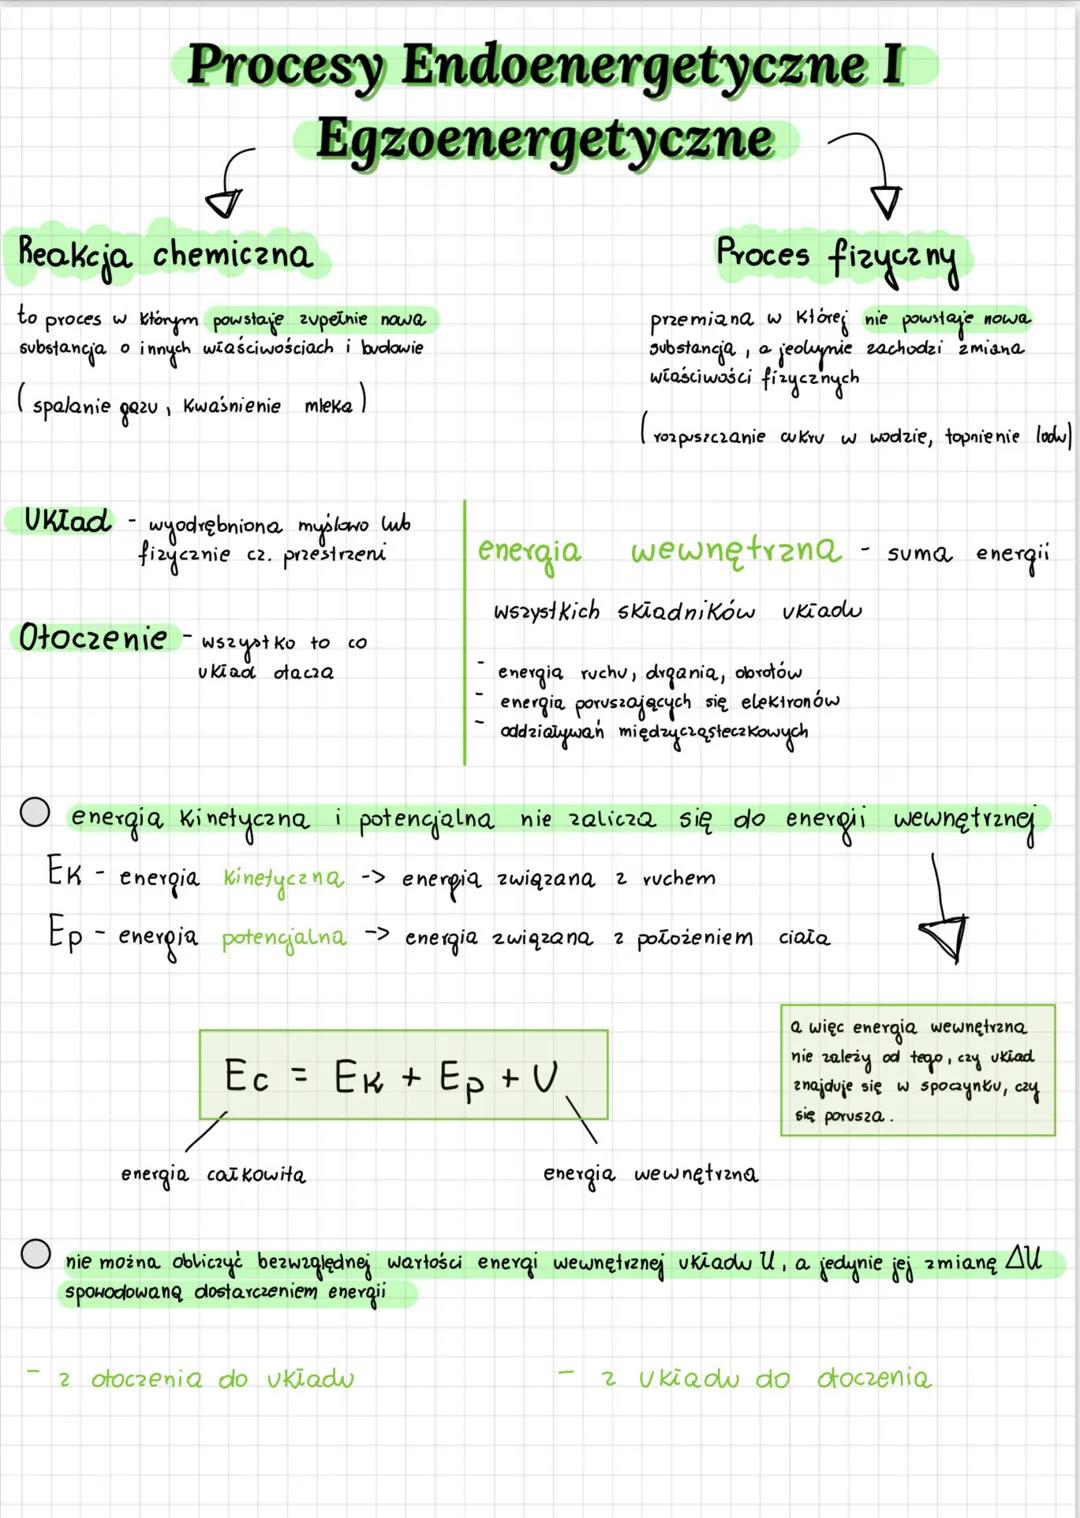 Procesy Endoenergetyczne I
Egzoenergetyczne
Reakcja chemiczna
to proces w którym powstaje zupełnie nowa
substancja o innych właściwościach i budowie
(spalanie gazu, kwaśnienie mleka)
Proces fizyczny
przemiana w której nie powstaje nowa
substancją, a jedynie zachodzi zmiana
właściwości fizycznych
(rozpuszczanie cukru w wodzie, topnienie lodu)
Układ - wyodrębniona myślowo lub
fizycznie cz. przestrzeni
Otoczenie - wszystko to co
układ otacza
energia wewnętrzna - suma energii
wszystkich składników układu
- energią ruchu, drgania, obrotów
- energia poruszających się elektronów
- oddziaływań międzycząsteczkowych
energia kinetyczna i potencjalna nie zalicza się do energii wewnętrznej
Ek - energia kinetyczna -> energia związana z ruchem
Ep - energia potencjalna -> energia związana z położeniem ciała
Ec = Ek + Ep + U
energia całkowita
energia wewnętrzna
a więc energia wewnętrzna
nie zależy od tego, czy układ
znajduje się w spoczynku, czy
się porusza.
nie można obliczyć bezwzględnej wartości energi wewnętrznej układu U, a jedynie jej zmianę ΔU
spowodowaną dostarczeniem energii
- z otoczenia do układu
- z układu do otoczenia